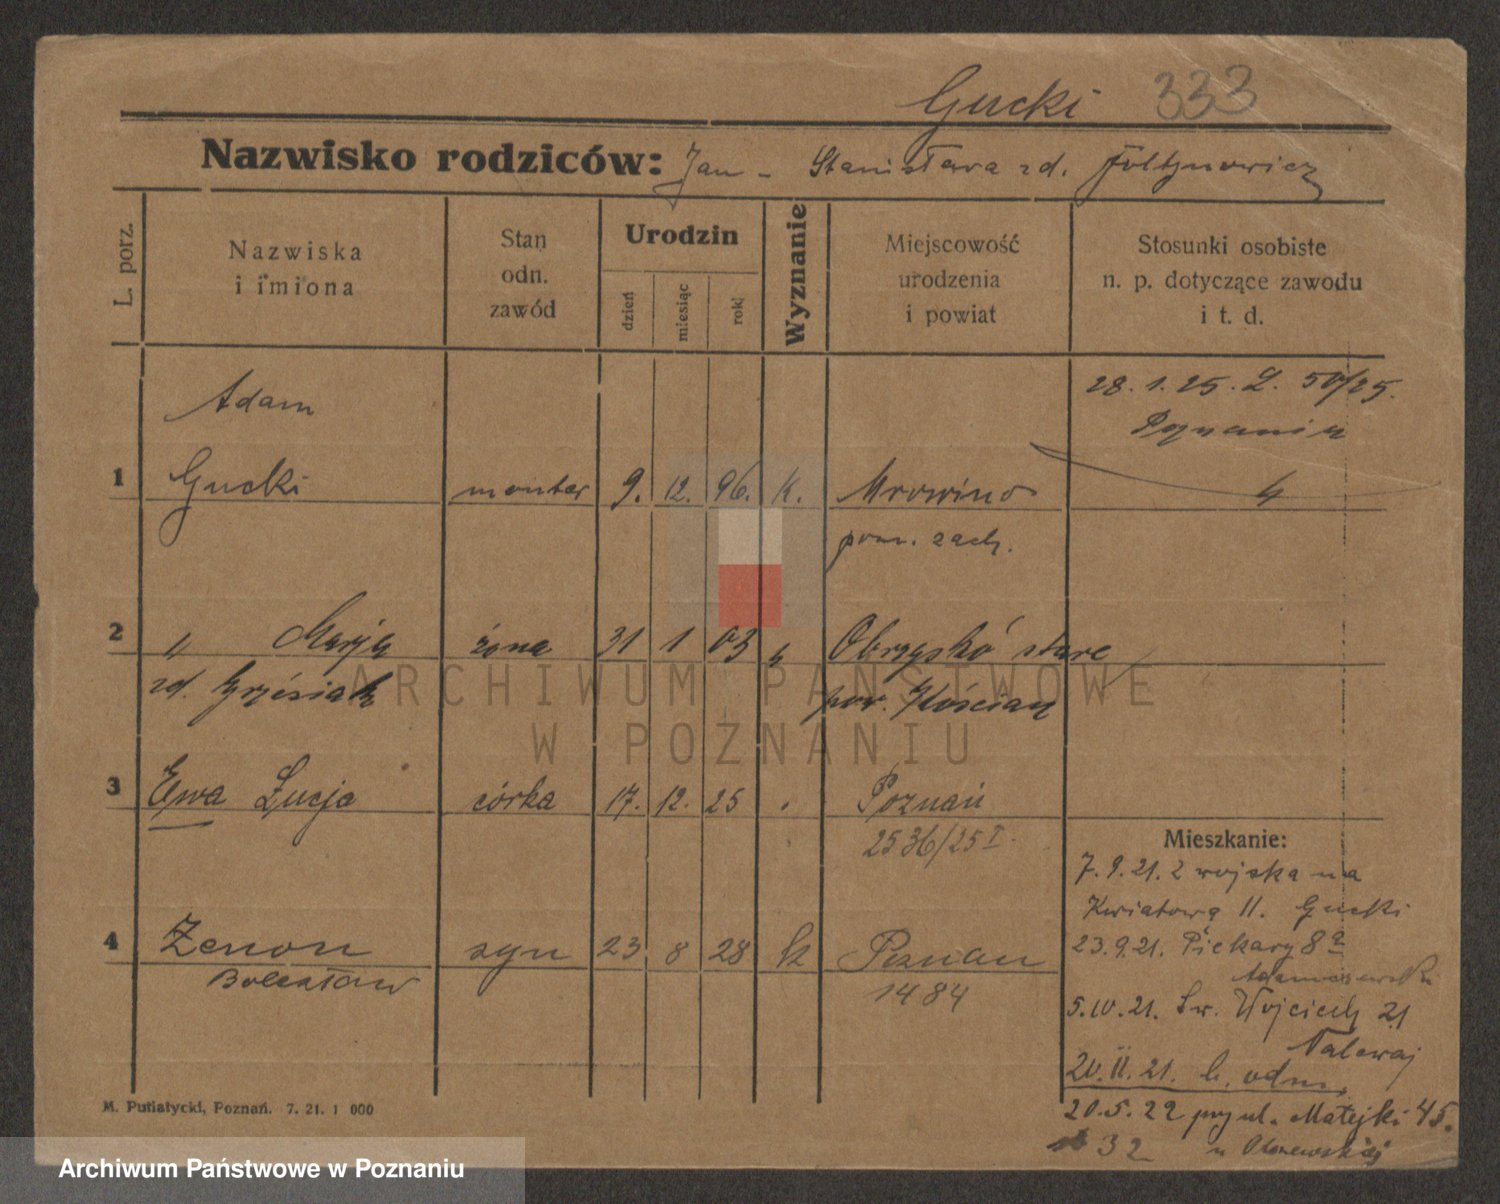 Gucki 333
Nazwisko rodziców: Jan - Stanisława zd. Foltynowicz
L. porz.
Nazwiska
i imiona
Stan
odn.
zawód
Urodzin
dzień
miesiąc
rok
Wyznanie
Miejscowość
urodzenia
i powiat
Stosunki osobiste
n. p. dotyczące zawodu
i t. d.
Adam
28. 1. 25. L. 50/25.
Poznania
1 Gucki monter 9. 12. 96. k. Mrowino 4
pozn. zach.
2 " Marja żona 31 1 03 " Obrzysko stare
zd. Grześiak pow. Kościan
3 Ewa Łucja córka 17. 12. 25 Poznań
2536/25 I.
4 Zenon syn 23 8 28 k Poznan
Bolesław 1484
Mieszkanie:
7. 9. 21. z wojska na
Kwiatową 11. Gucki
23. 9. 21. Piekary 8a
Adamczewski
5. 10. 21. Św. Wojciech 21
Nalewaj
20. 11. 21.
20. 5. 22 przy ul. Matejki 45.
32 u
M. Putiatycki, Poznań. 7. 21. 1 000
ARCHIWUM PAŃSTWOWE
W POZNANIU
Archiwum Państwowe w Poznaniu